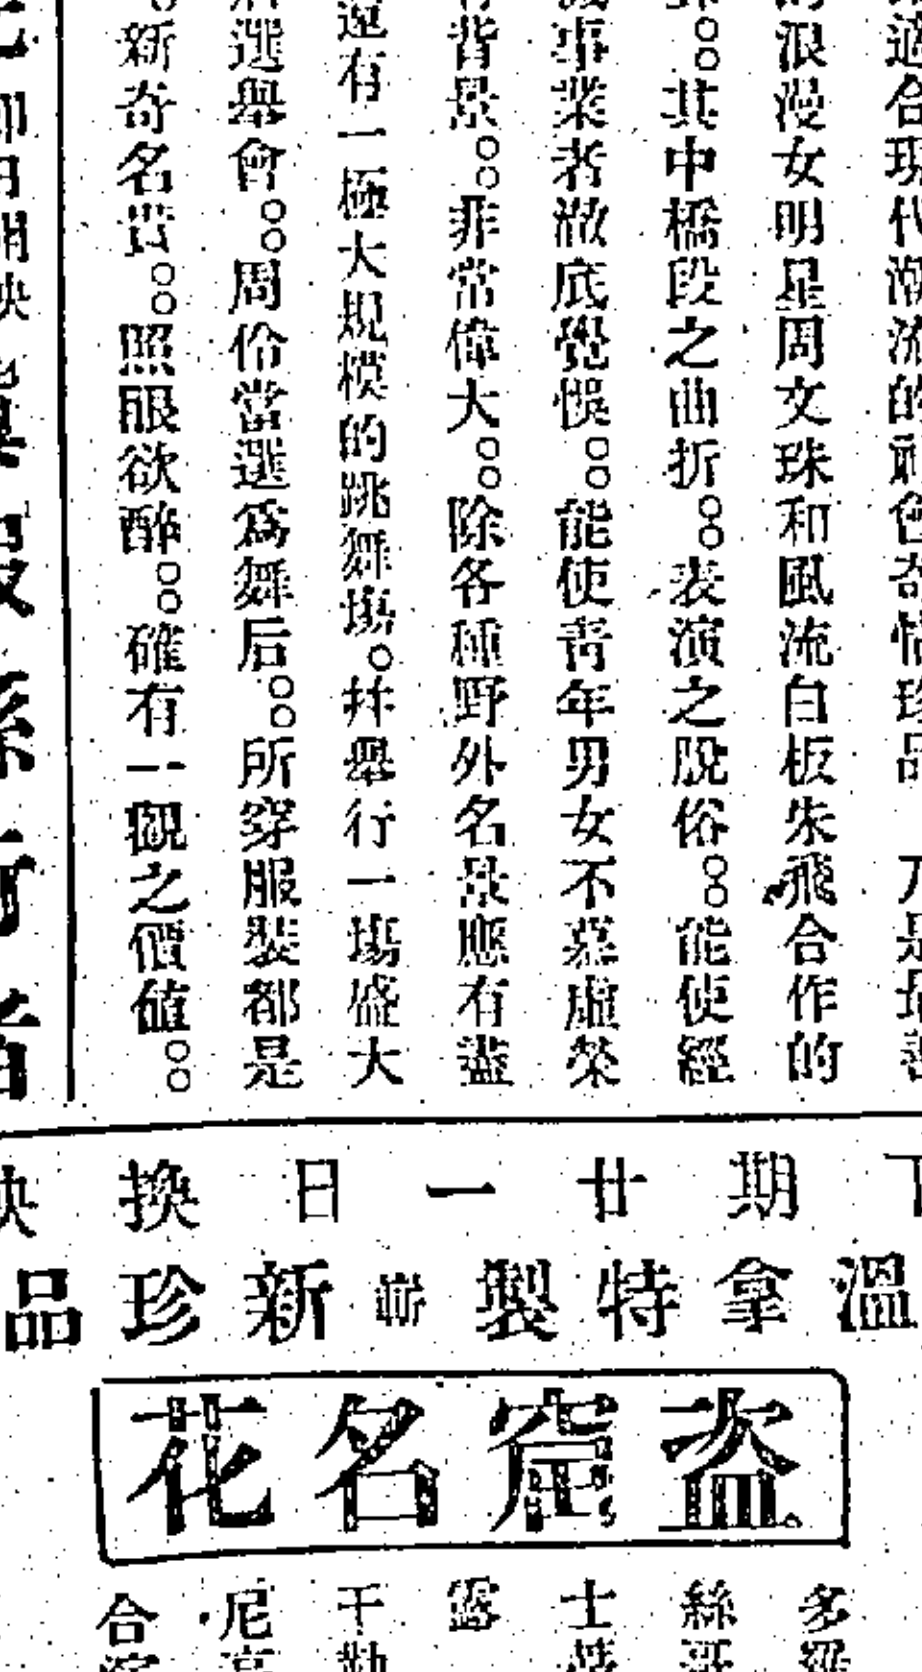 適合現代潮流的社會奇情珍品　乃是
浪漫女明星周文珠和風流白板朱飛合作的
。。其中橋段之曲折。。表演之脫俗。。能使經
事業者澈底覺悞。。能使青年男女不慕虛榮
背景。。非常偉大。。除各種野外名景應有盡
還有一極大規模的跳舞塲。幷舉行一塲盛大
選舉會。。周伶當選爲舞后。。所穿服裝都是
。新奇名貴。。照眼欲醉。。確有一觀之價値。。
期廿一日換
溫拿特製嶄新珍品
盜窟名花
多絲士露干尼合